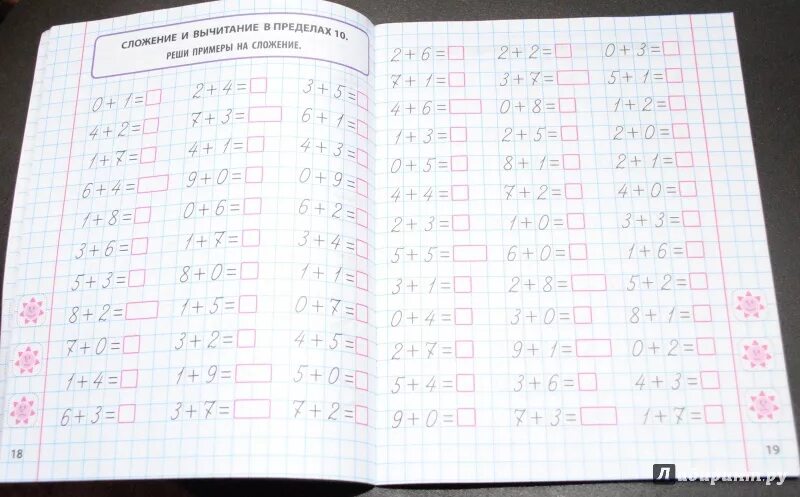 СЛОЖЕНИЕ И ВЫЧИТАНИЕ В ПРЕДЕЛАХ 10.
РЕШИ ПРИМЕРЫ НА СЛОЖЕНИЕ.
0+1= 2+4= 3+5=
4+2= 7+3= 6+1=
1+7= 4+1= 4+3=
6+4= 9+0= 0+9=
1+8= 0+6= 6+2=
3+6= 1+7= 3+4=
5+3= 8+0= 1+1=
8+2= 1+5= 0+7=
7+0= 3+2= 4+5=
1+4= 1+9= 5+0=
6+3= 3+7= 7+2=
18
2+6= 2+2= 0+3=
7+1= 3+7= 5+1=
4+6= 0+8= 1+2=
1+3= 2+5= 2+0=
0+5= 8+1= 2+1=
4+4= 7+2= 4+0=
2+3= 1+0= 3+3=
5+5= 6+0= 1+6=
3+1= 2+8= 5+2=
0+4= 3+0= 8+1=
2+7= 9+1= 0+2=
5+4= 3+6= 4+3=
9+0= 7+3= 1+7=
19
Лабиринт.ру